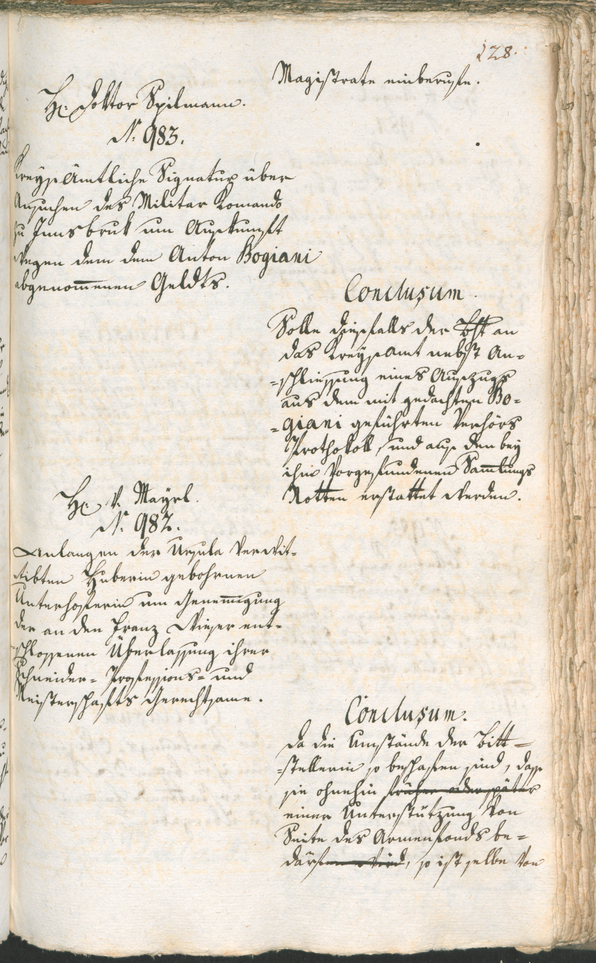 128.
Magistrate einberufe.
H: Doktor Spilmann.
N: 983.
Kreysämtliche Signatur über
Ansuchen des Militar Komando
zu Innsbruk um Auskunft
wegen dem dem Anton Bogiani
abgenom̅enen Geldts.
Conclusum.
Solle dießfalls der Bſt an
das Kreysamt nebst An-
-schliessung eines Auszugs
aus dem mit gedachten Bo-
-giani geführten Verhörs
Prothokoll, und aus den bey
ihm Vorgefundenen Sam̅lungs
Notten erstattet werden.
H: v. Mayrl.
N: 982.
Anlangen der Ursula Verwit-
tibten Huberin gebohrnen
Unterhoferin um Genem̅igung
der an den Franz Wieser ent-
schlossenen Überlassung ihrer
Schneider- Professions- und
Meisterschafts Gerechtsame.
Conclusum.
Da die Umstände der Bitt-
-stellerin so beschafen sind, dass
sie ohnehin früher oder später
einer Unterstützung von
Seite des Armenfonds be-
därfen wird, so ist selbe von